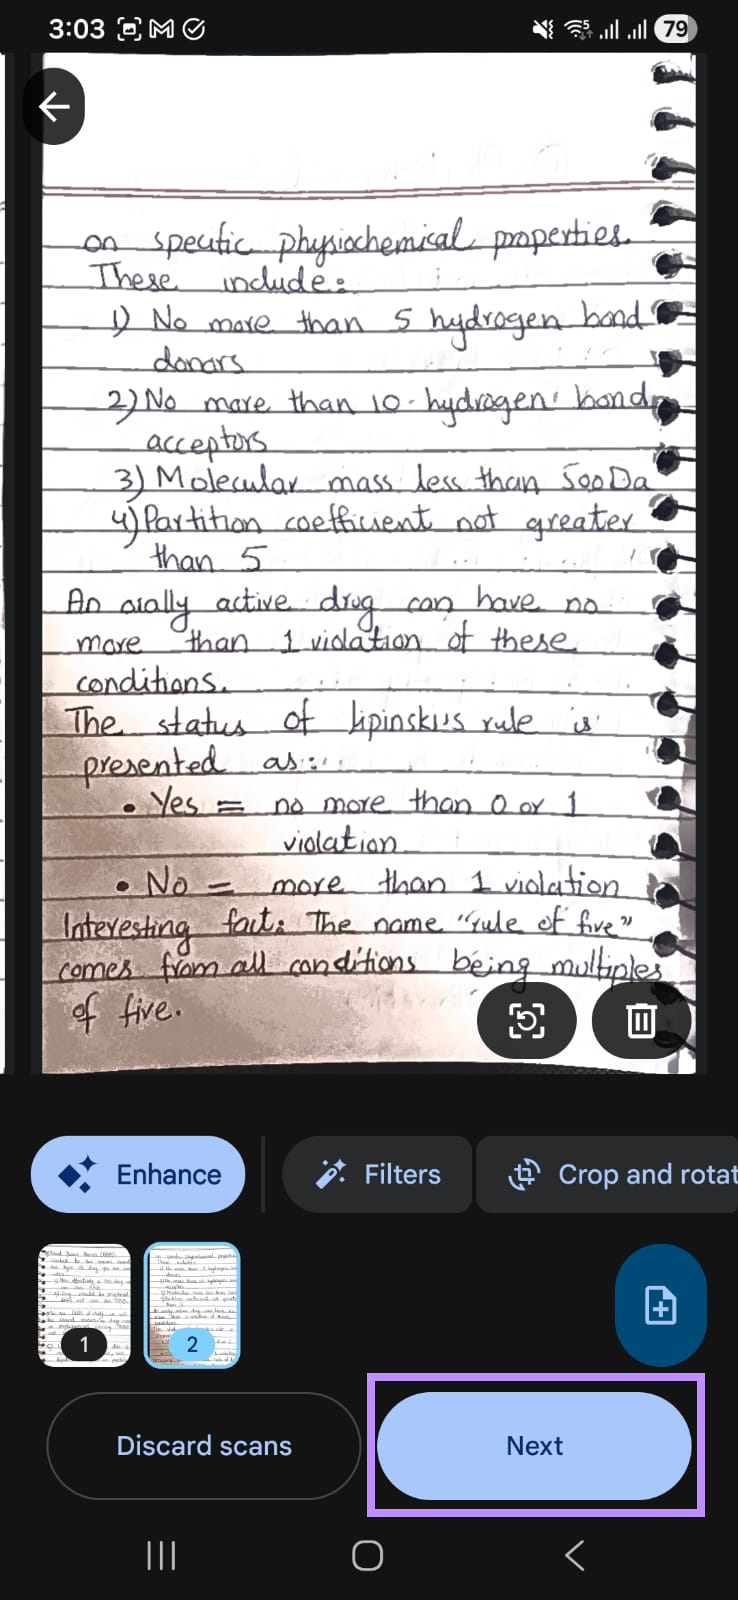 3:03
79
on specific physiochemical properties.
These include:
1) No more than 5 hydrogen bond
donors
2) No more than 10 hydrogen bond
acceptors
3) Molecular mass less than 500Da
4) Partition coefficient not greater
than 5
An orally active drug can have no
more than 1 violation of these
conditions.
The status of lipinski's rule is
presented as:
• Yes = no more than 0 or 1
violation
• No = more than 1 violation
Interesting fact: The name "rule of five"
comes from all conditions being multiples
of five.
Enhance
Filters
Crop and rotat
1
2
Discard scans
Next